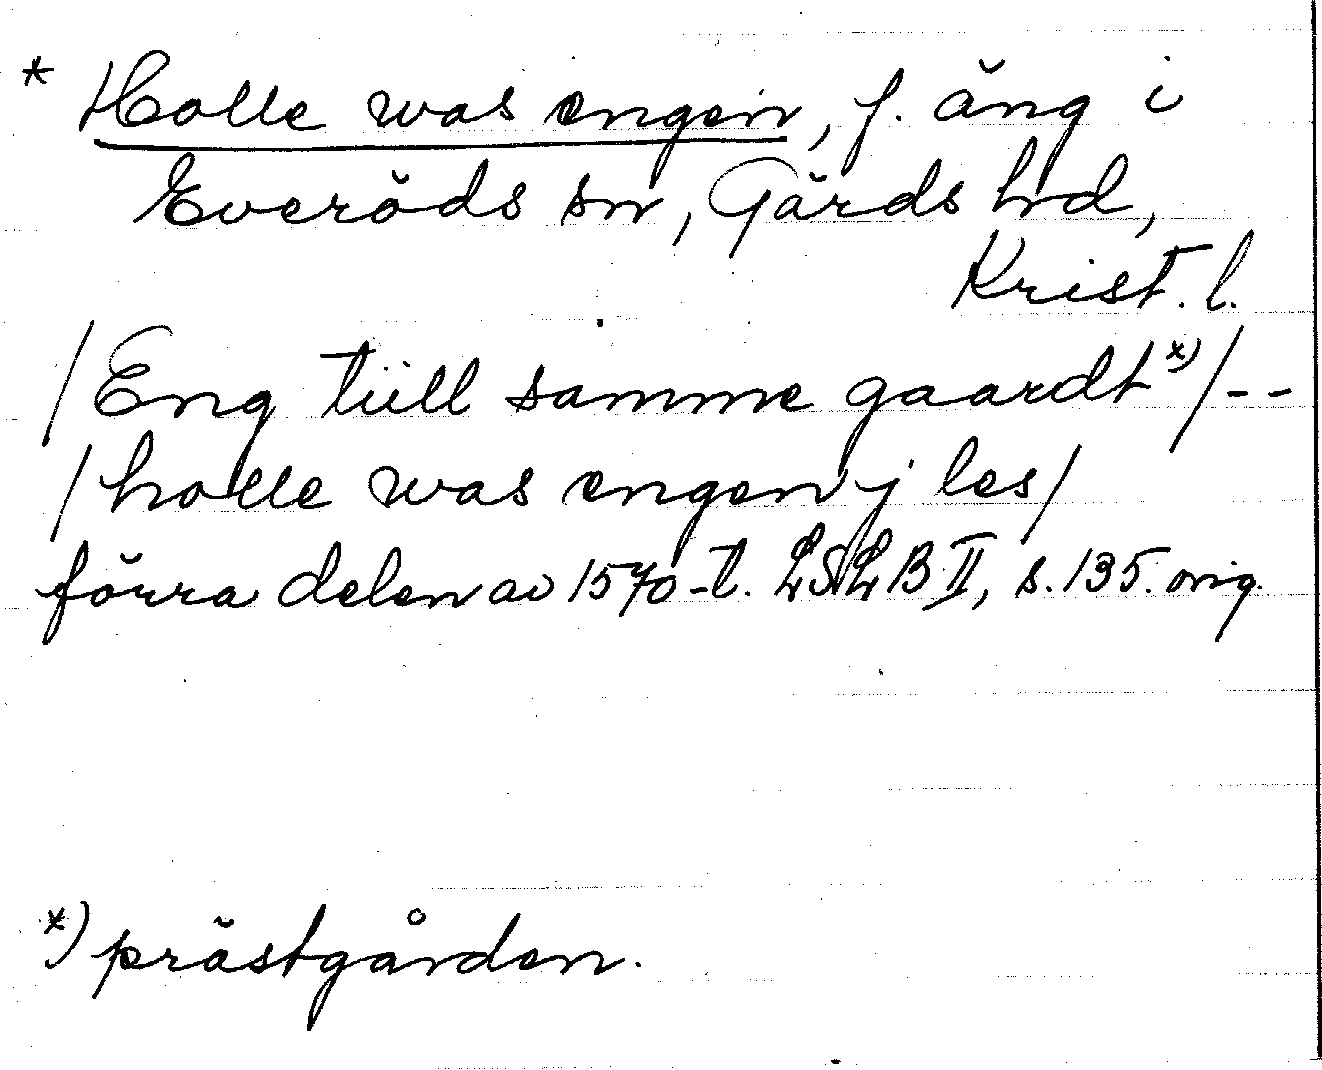 * Holle was engen, f. äng i
Everöds sn, Gärds hd,
Krist. l.
/Eng tiill samme gaardt x)/--
/holle was engen j les/
förra delen av 1570-t. LSLB II, s. 135. orig.
x) prästgården.